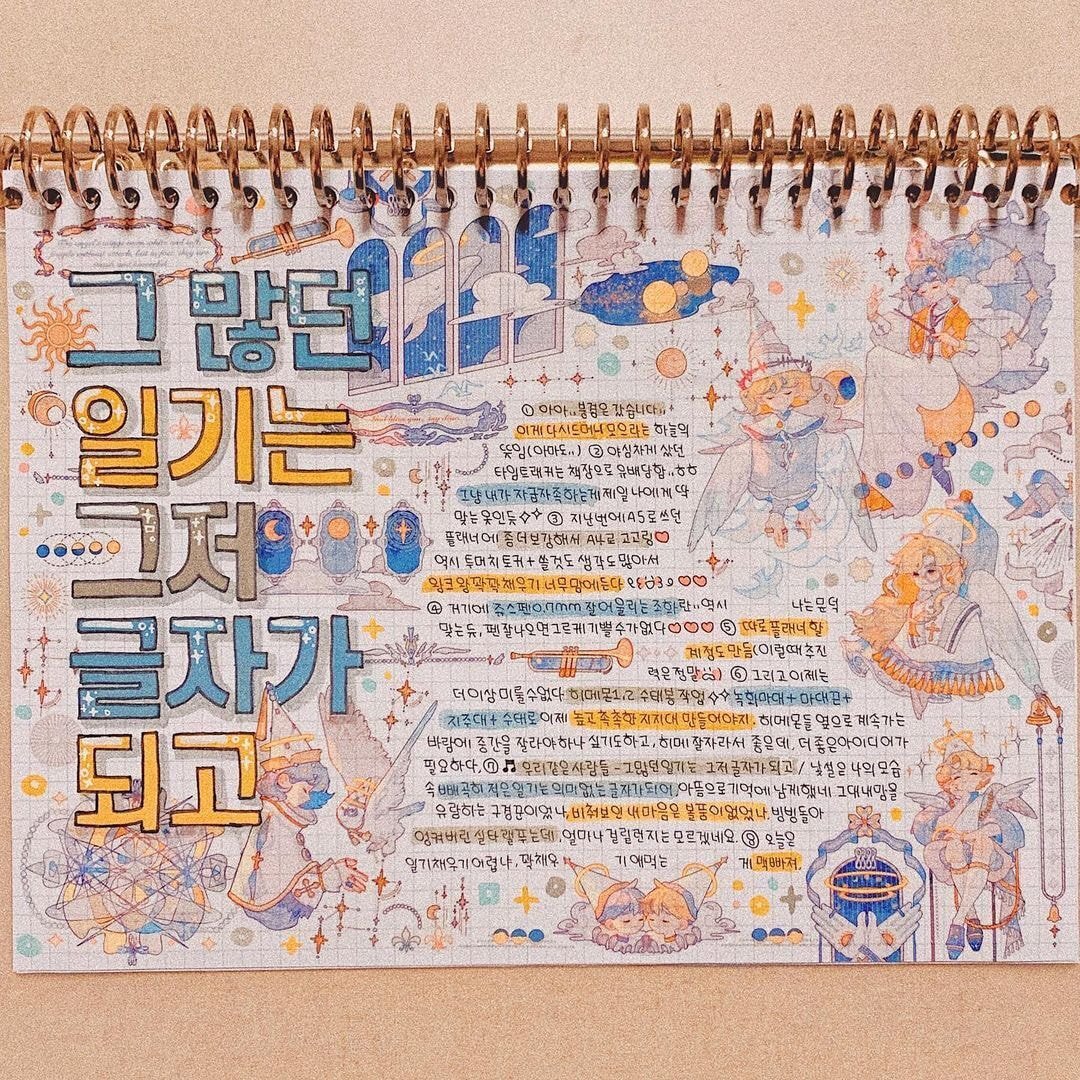 그 많던
일기는
그저
글자가
되고
① 아아.. 불렛은 갔습니다..
이게 다시 드머니 모으라는 하늘의
뜻임(아마도..) ② 야심차게 샀던
타임트래커는 책장으로 유배당함.. ㅎㅎ
그냥 내가 자급자족하는게 제일 나에게 딱
맞는 옷인듯 ③ 지난번에 A5로 쓰던
플래너에 좀 더 보강해서 A4로 고고링♡
역시 투머치토커 + 쓸것도 생각도 많아서
왕크왕꽉꽉 채우기 너무 맘에 든다 ♡♡
④ 거기에 쥬스펜 0.7mm 잘 어울리는 조화란.. 역시 나는 문덕
맞는듯, 펜 잘 나오면 그르케 기쁠수가 없다 ♡♡♡ ⑤ 따로 플래너 할
계정도 만듦(이럴때 추진
력은 정말) ⑥ 그리고 이제는
더 이상 미룰 수 없다 히메몬 1,2 수태봉 작업 녹화마대 + 마대끈 +
지주대 + 수태로 이제 높고 촉촉한 지지대 만들어야지. 히메몬들 옆으로 계속 가는
바람에 중간을 잘라야 하나 싶기도 하고, 히메 잘 자라서 좋은데, 더 좋은 아이디어가
필요하다. ⑦ 🎵 우리같은사람들 - 그 많던 일기는 그저 글자가 되고 / 낯설은 나의 모습
속 빼곡히 적은 일기는 의미없는 글자가 되어, 아픔으로 기억에 남게 했네 그대 내 맘을
유랑하는 구경꾼이었나, 비춰보인 내 마음은 볼품이 없었나, 빙빙 돌아
엉켜버린 실타랠 푸는데, 얼마나 걸릴런지는 모르겠네요. ⑧ 오늘은
일기 채우기 어렵냐, 꽉 채우기 애먹는게 맥빠져.